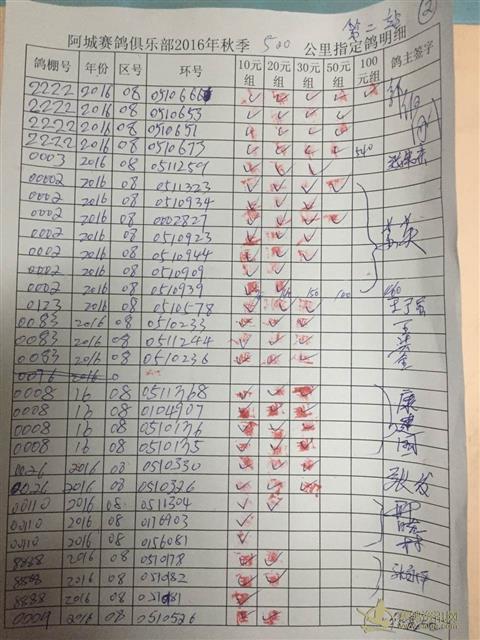 第二站 ②
阿城赛鸽俱乐部2016年秋季 500 公里指定鸽明细
鸽棚号 年份 区号 环号 10元组 20元组 30元组 50元组 100元组 鸽主签字
2222 2016 08 051066 ✓ ✓ ✓ ✓ ✓
2222 2016 08 0510653 ✓ ✓ ✓ ✓
2222 2016 08 0510651 ✓ ✓ ✓ ✓
2222 2016 08 0510673 ✓ ✓ ✓ ✓ 540
0003 2016 08 0511259 ✓ ✓ ✓
0002 2016 08 0511323 ✓ ✓ ✓ ✓
0002 2016 08 0510934 ✓ ✓ ✓
0002 2016 08 0002827 ✓ ✓ ✓ ✓
0002 2016 08 0510923 ✓ ✓ ✓
0002 2016 08 0510944 ✓ ✓ ✓
0002 2016 08 0510909 ✓ ✓
0002 2016 08 0510939 ✓ ✓ 150 100
0123 2016 08 0510578 ✓ ✓ ✓
0083 2016 08 0510233 ✓ ✓ ✓
0083 2016 08 0511244 ✓ ✓ ✓
0083 2016 08 0510236 ✓ ✓ ✓
0008 16 08 0511368 ✓ ✓ ✓ 康
0008 16 08 0104907 ✓ ✓ ✓ 建
0008 16 08 0510136 ✓ ✓ ✓
0008 16 08 0510135 ✓ ✓ ✓
0026 2016 08 0510330 ✓ ✓ ✓ 张发
0026 2016 08 0510326 ✓ ✓ ✓
00110 2016 08 0511304 ✓ ✓
00110 2016 08 0176903 ✓
00110 2016 08 0156081 ✓
8888 2016 08 0510178 ✓ ✓
8888 2016 08 051082 ✓ ✓
8888 2016 08 ✓
0009 2016 08 0510526 ✓ ✓